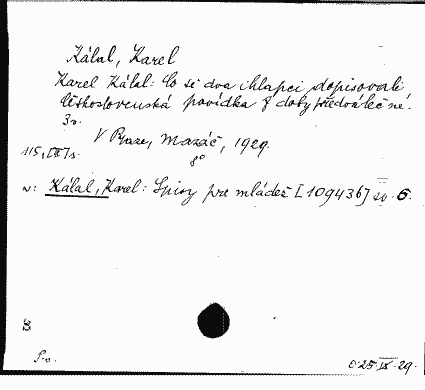 Kálal, Karel
Karel Kálal: Co si dva chlapci dopisovali
Československá povídka z doby předválečné.
3v.
V Praze, Mazáč, 1929.
8°
115, [II] s.
v: Kálal, Karel: Spisy pro mládež [109436] sv. 6.
S
025 IX 29.